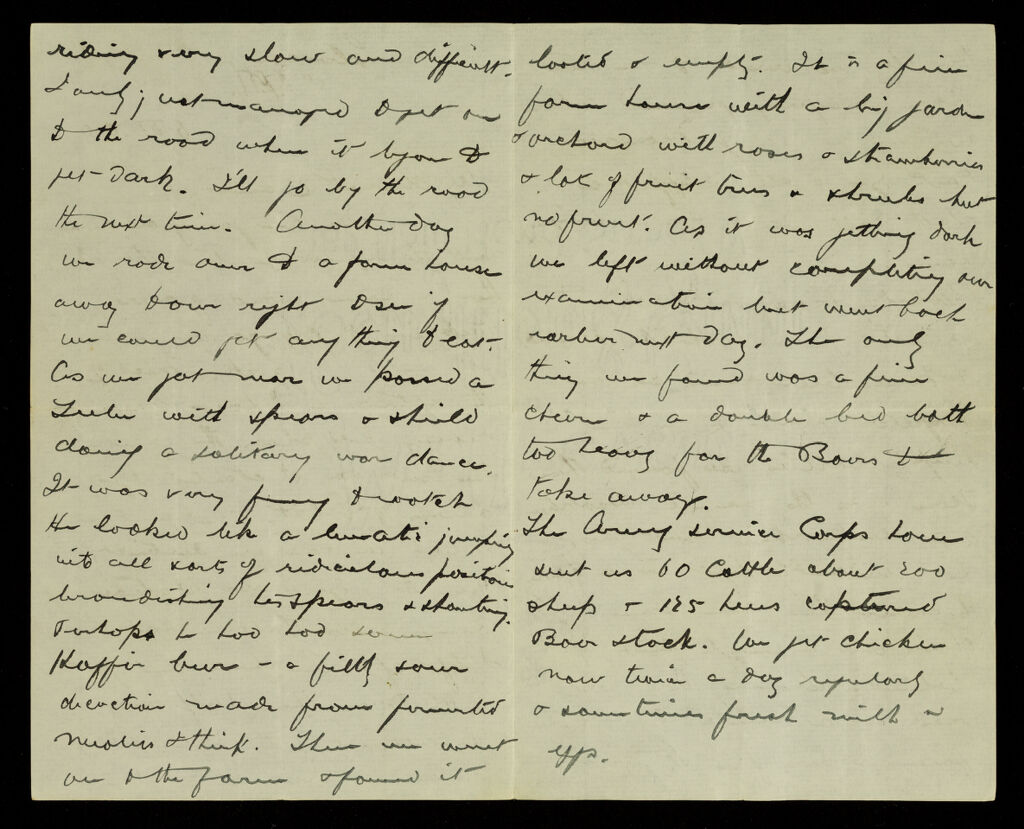 riding very slow and difficult.
I only just managed to get on
to the road when it began to
get dark. I'll go by the road
the next time. Another day
we rode over to a farm house
away down right to see if
we could get anything to eat.
As we got near we passed a
Zulu with spears & shield
doing a solitary war dance.
It was very funny to watch
He looked like a lunatic jumping
into all sorts of ridiculous positions
brandishing his spears & shouting.
Perhaps he had had some
Kaffir beer – a filthy sour
decoction made from fermented
mealies I think. Then we went
on to the farm & found it
looted & empty. It is a fine
farm house with a big garden
& orchard with roses & strawberries
& lot of fruit trees & shrubs but
no fruit. As it was getting dark
we left without completing our
examination but went back
earlier next day. The only
thing we found was a fine
churn & a double bed both
too heavy for the Boers to
take away.
The Army Service Corps have
sent us 60 Cattle about 200
sheep & 125 hens captured
Boer stock. We get chicken
now twice a day regularly
& sometimes fresh milk &
eggs.